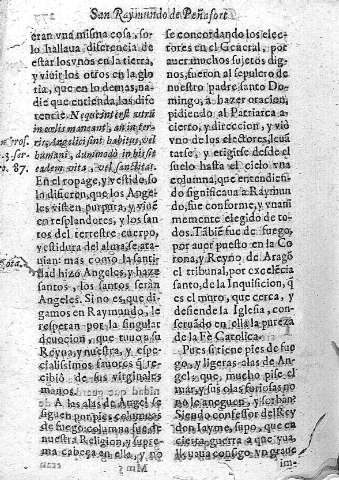 San Raymundo de Peñafort
eran vna misma cosa, so-
lo hallaua, diferencia de
estar los vnos en la tierra,
y viuir los otros en la glo
ria, que en lo demas, na-
die que entienda, los dife
rencie. Nequirinter vtrũ
in cœlis maneant, an in ter-
ris, Angelici sint habitus, vel
humani, dummodò in his sit
eadem vita, vel sanctitas.
En el ropage, y vestido, so
lo difieren, que los Ange
les visten purpura, y viuẽ
en resplandores, y los san
tos del terrestre cuerpo,
vestidura del alma, se ata-
uian: mas como la santi-
dad hizo Angeles, y haze
santos, los santos serán
Angeles. Si no es, que di-
gamos en Raymundo, le
respetan por la singular
deuocion, que tuuo su
Reyna, y nuestra, y espe-
cialissimos fauores q̃ re-
cibiò de sus virginales
manos.
A las alas de Angel se
siguen por pies columnas
de fuego: columna fue de
nuestra Religion, y supre-
ma cabeça en ella, y no
ros.
3. ser
o. 87.
se concordando los elec-
tores en el General, por
auer muchos sujetos dig-
nos, fueron al sepulcro de
nuestro padre santo Do-
mingo, à hazer oracion,
pidiendo al Patriarca a-
cierto, y direccion, y viò
vno de los electores, leuã
tarse, y erigirse desde el
suelo hasta el cielo vna
columna, que entendien-
do significaua à Raymun
do, fue conforme, y vnani
memente elegido de to-
dos. Tãbiẽ fue de fuego,
por auer puesto en la Co
rona, y Reyno de Aragõ
el tribunal, por excelẽcia
santo, de la Inquisicion, q̃
es el muro, que cerca, y
defiende la Iglesia, con-
seruando en ella la pureza
de la Fè Catolica.
Pues si tiene pies de fue
go, y ligeras alas de An-
gel, que, mucho pise el
mar, y sus olas furiosas no
le aneguen,
Siendo confessor del Rey
don Iayme, supo, que en
cierta guerra a que yua,
lleuaua consigo vn graue
Mm 3
im-